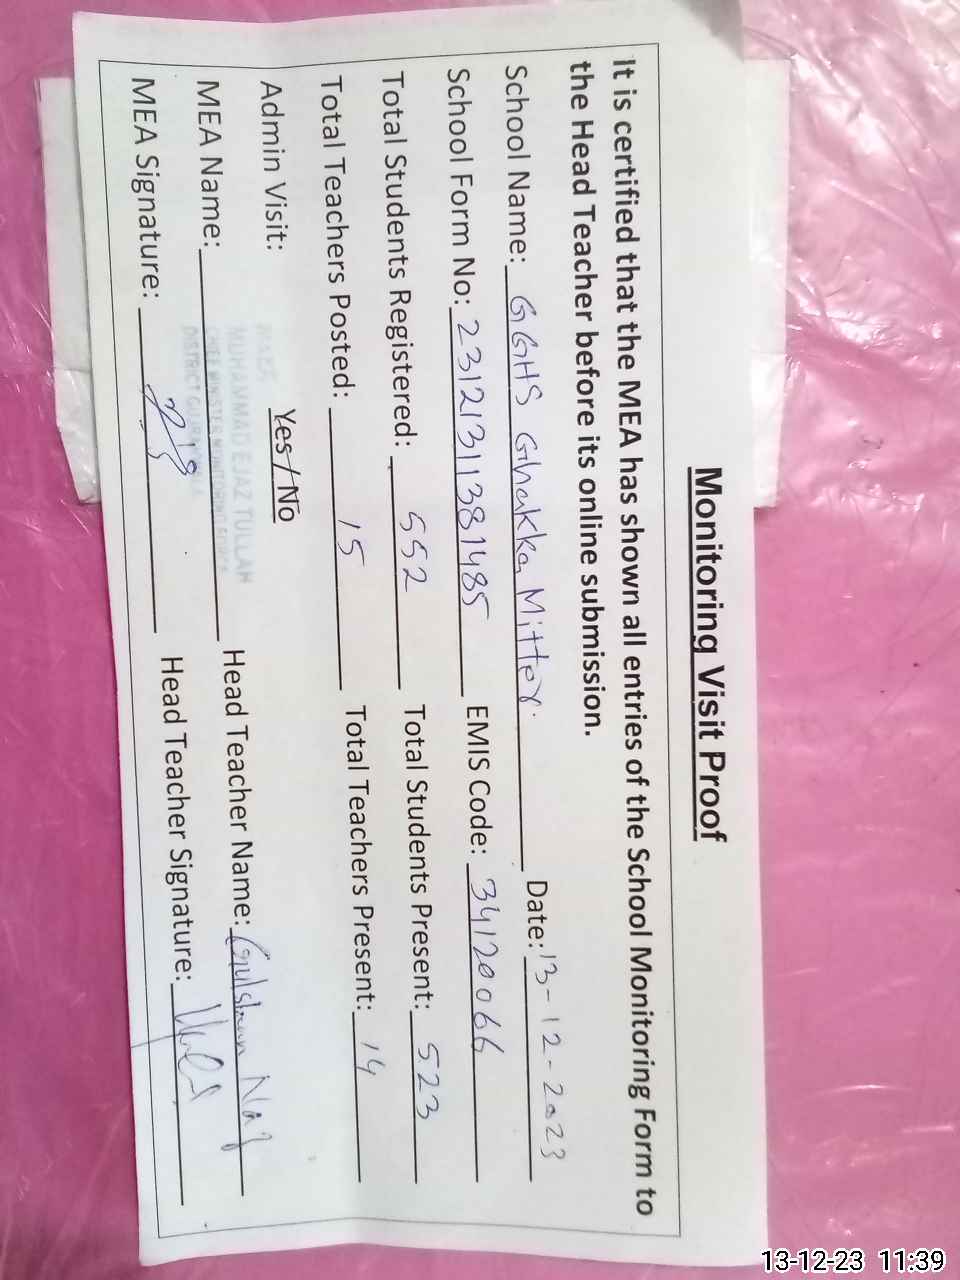 Monitoring Visit Proof
It is certified that the MEA has shown all entries of the School Monitoring Form to
the Head Teacher before its online submission.
Date: 13-12-2023
School Name: GGHS Ghakka Mitter.
School Form No: 23121311381485 EMIS Code: 34120066
Total Students Registered: 552 Total Students Present: 523
Total Teachers Posted: 15 Total Teachers Present: 14
Admin Visit: Yes / No
MUHAMMAD EJAZ TULLAH
MEA Name: Head Teacher Name: Gulshan Naz
CHIEF MINISTER MONITORING FORCE
DISTRICT GUJRANWALA
MEA Signature: Head Teacher Signature:
13-12-23 11:39